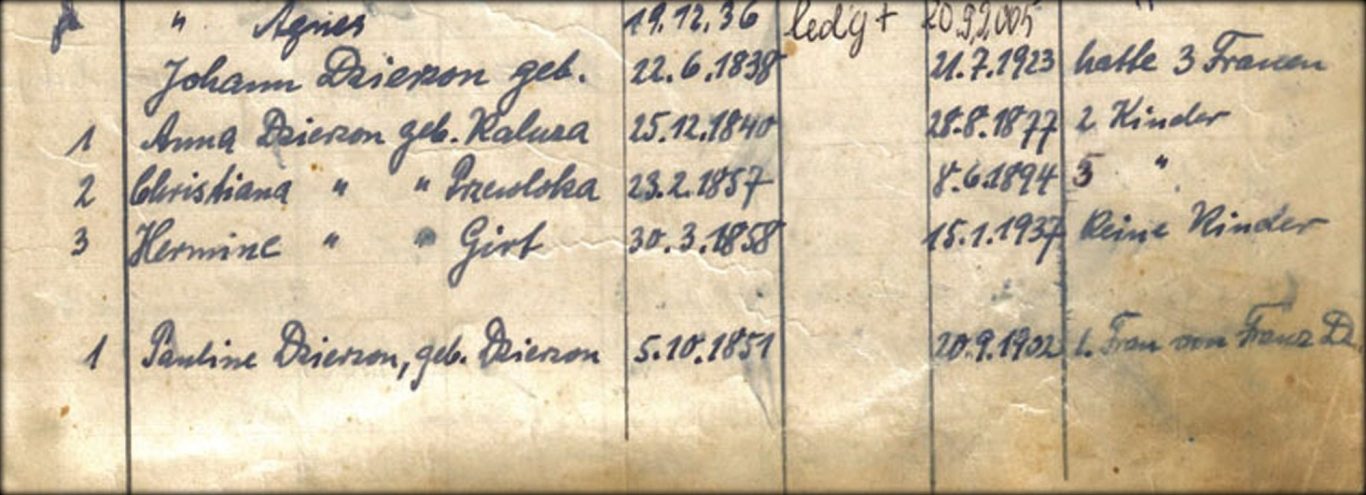 " Agnes 19.12.36 ledig + 20.9.2005 "
Johann Dzierzon geb. 22.6.1838 21.7.1923 hatte 3 Frauen
1 Anna Dzierzon geb. Kaluza 25.12.1840 28.8.1877 2 Kinder
2 Christiana " " Przewloka 23.2.1857 8.6.1894 5 "
3 Hermine " " Girt 30.3.1858 15.1.1937 keine Kinder
1 Pauline Dzierzon, geb. Dzierzon 5.10.1851 20.9.1902 1. Frau von Franz Dz.